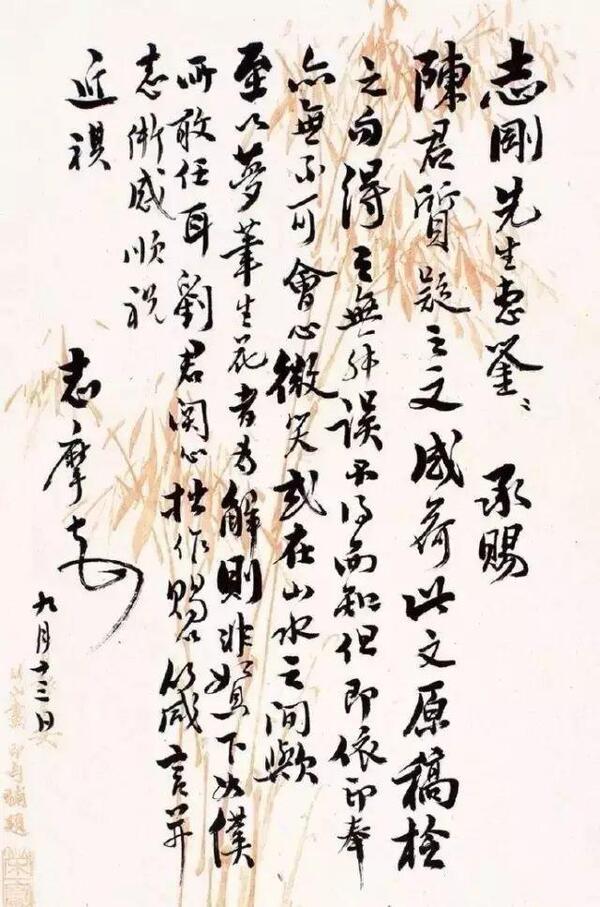 志剛先生惠鉴 承賜
陳君質疑之文感荷此文原稿检
之自得 無 誤不得而知但即依印奉
亦無不可會心微笑或在山水之间歟
至以夢笔生花者为解則非 下如僕
所敢任耳劉君関心拙作賜以箴言并
志慚感顺祝
近祺
志摩
九月十三日